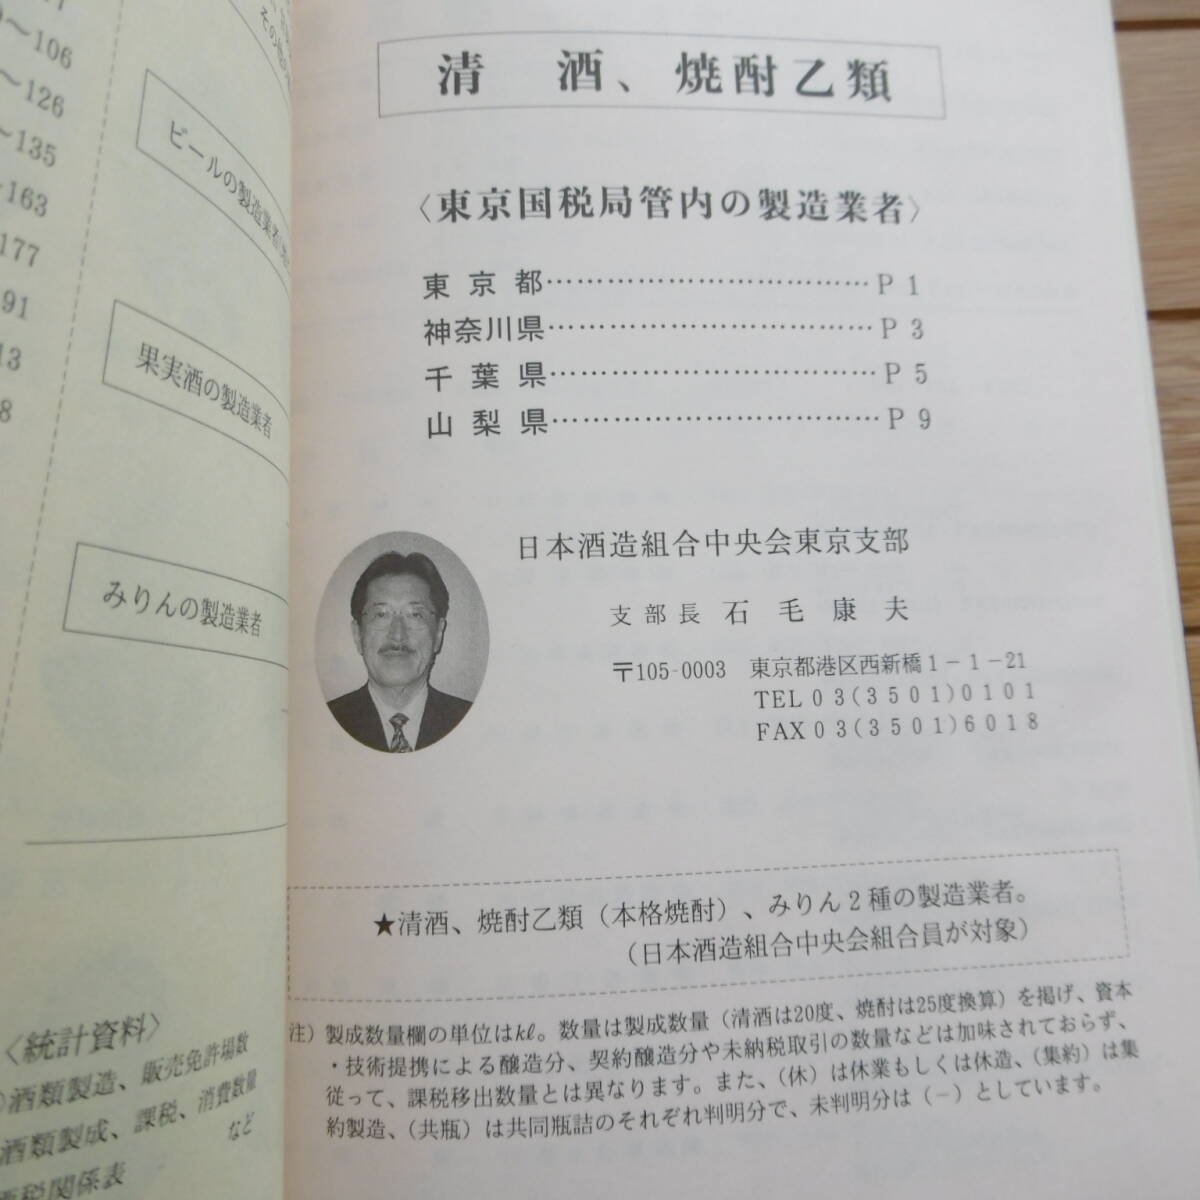 ～106
～126
～135
163
177
91
13
8
ビールの製造業者
果実酒の製造業者
みりんの製造業者
〈統計資料〉
酒類製造、販売免許場数
酒類製成、課税、消費数量
など
税関係表
清　酒、焼酎乙類
〈東京国税局管内の製造業者〉
東京都……………………………P 1
神奈川県……………………………P 3
千葉県……………………………P 5
山梨県……………………………P 9
日本酒造組合中央会東京支部
支部長　石毛康夫
〒105-0003　東京都港区西新橋1-1-21
TEL 03(3501)0101
FAX 03(3501)6018
★清酒、焼酎乙類（本格焼酎）、みりん2種の製造業者。
（日本酒造組合中央会組合員が対象）
注）製成数量欄の単位はkℓ。数量は製成数量（清酒は20度、焼酎は25度換算）を掲げ、資本
・技術提携による醸造分、契約醸造分や未納税取引の数量などは加味されておらず、
従って、課税移出数量とは異なります。また、（休）は休業もしくは休造、（集約）は集
約製造、（共瓶）は共同瓶詰のそれぞれ判明分で、未判明分は（－）としています。